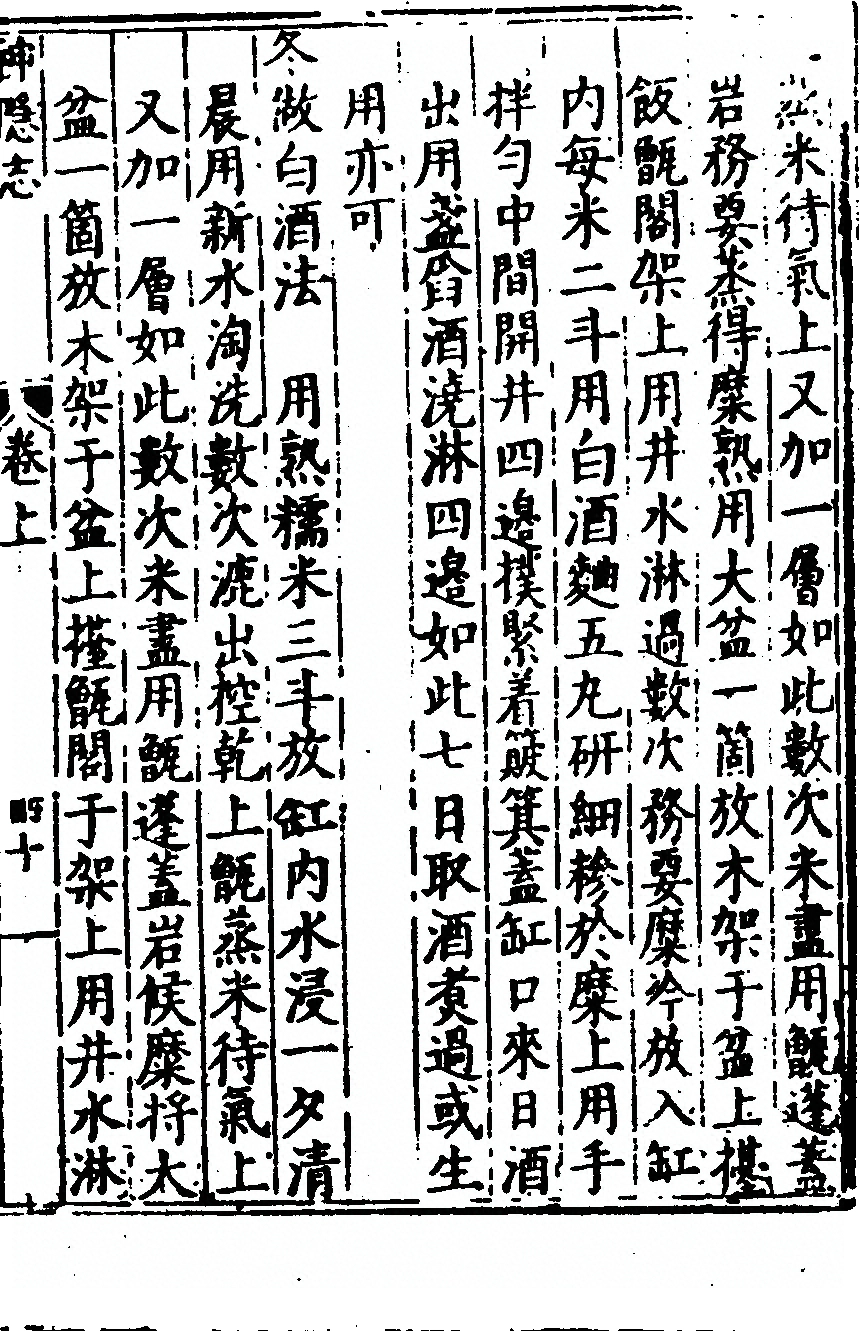 蒸米待氣上又加一層如此數次米盡用甑蓬蓋
岩務要蒸得糜熟用大盆一箇放木架于盆上擡
飯甑閣架上用井水淋過數次務要糜冷放入缸
内每米二斗用白酒麯五丸研細糝於糜上用手
拌勻中間開井四邉撲緊着簸箕蓋缸口來日酒
出用盞舀酒澆淋四邉如此七日取酒煑過或生
用亦可
冬做白酒法　用熟糯米三斗放缸内水浸一夕清
晨用新水淘洗數次漉出控乾上甑蒸米待氣上
又加一層如此數次米盡用甑蓬蓋岩候糜将大
盆一箇放木架于盆上擡甑閣于架上用井水淋
神隱志　卷上　四十一